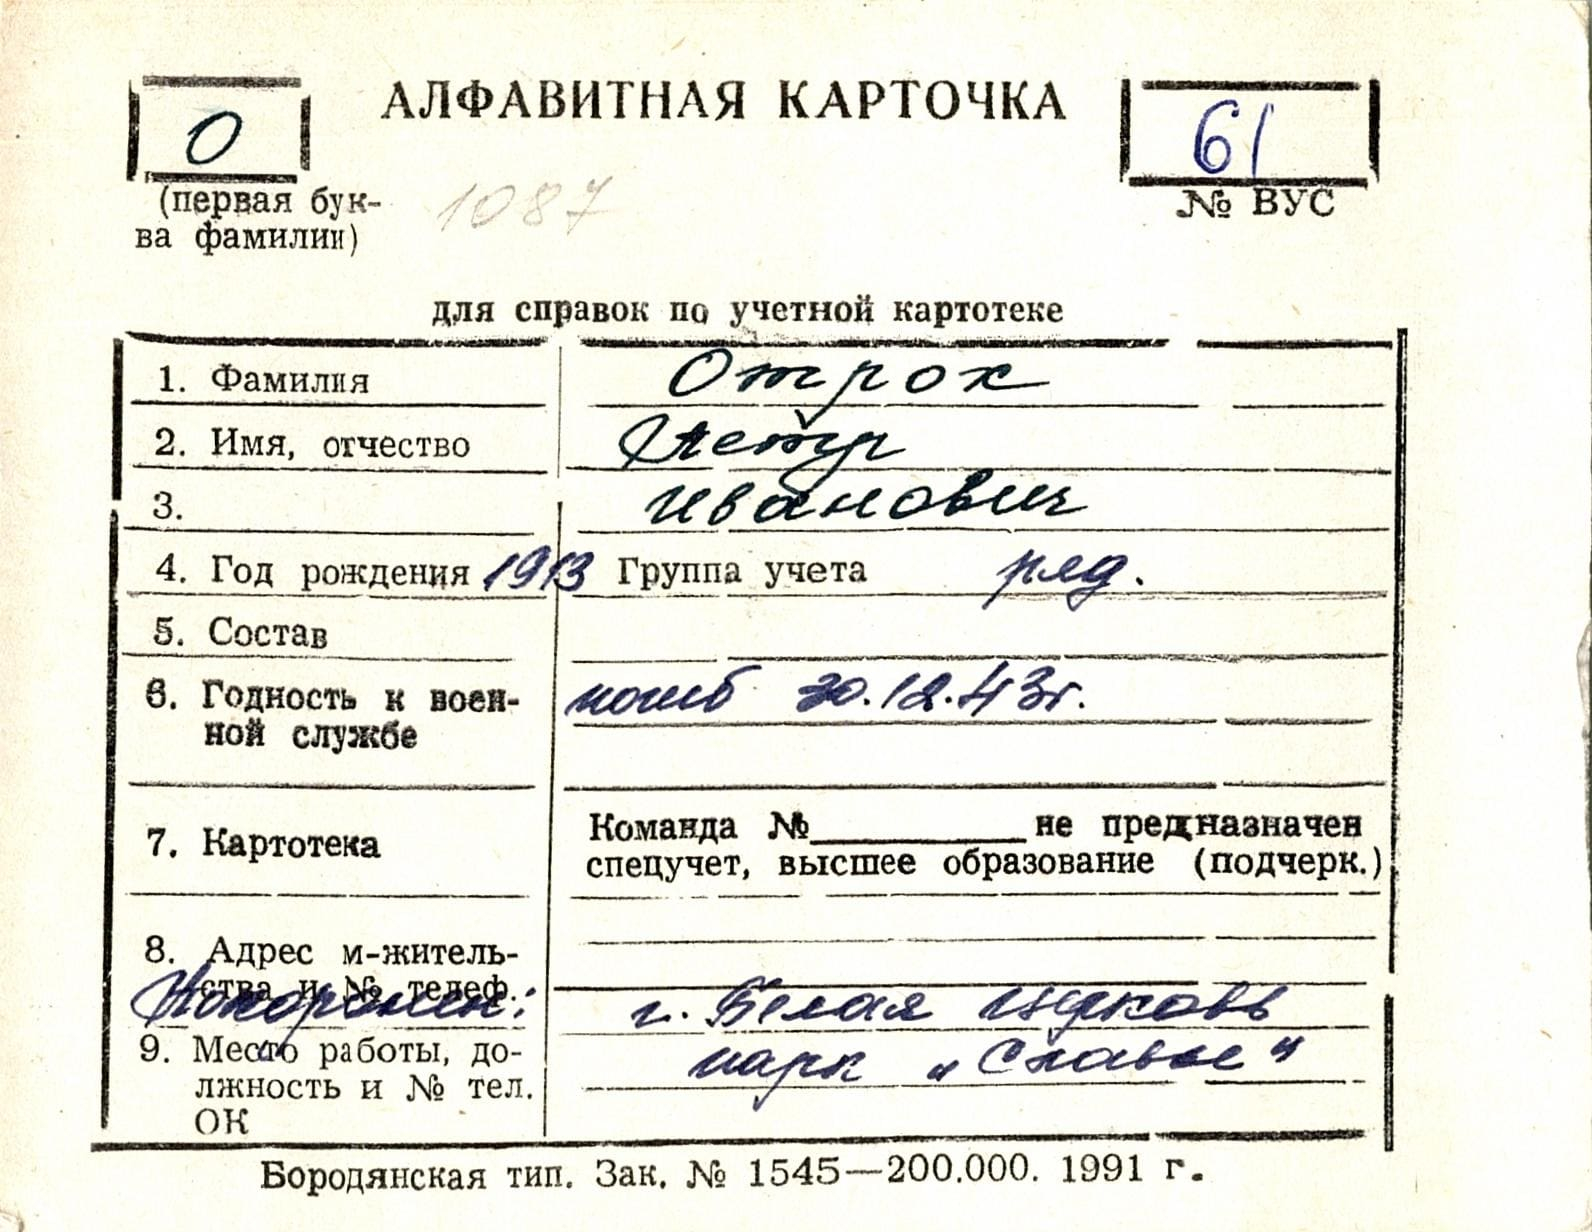 О
АЛФАВИТНАЯ КАРТОЧКА
61
(первая бук-
ва фамилии)
1087
№ ВУС
для справок по учетной картотеке
1. Фамилия Отрох
2. Имя, отчество Петр
3. Иванович
4. Год рождения 1913 Группа учета ряд.
5. Состав
6. Годность к воен-
ной службе
погиб 30.12.43г.
7. Картотека
Команда №__________не предназначен
спецучет, высшее образование (подчерк.)
8. Адрес м-житель-
ства и № телеф.
Похоронен: г. Белая Церковь
парк „Славы"
9. Место работы, до-
лжность и № тел.
ОК
Бородянская тип. Зак. № 1545—200.000. 1991 г.